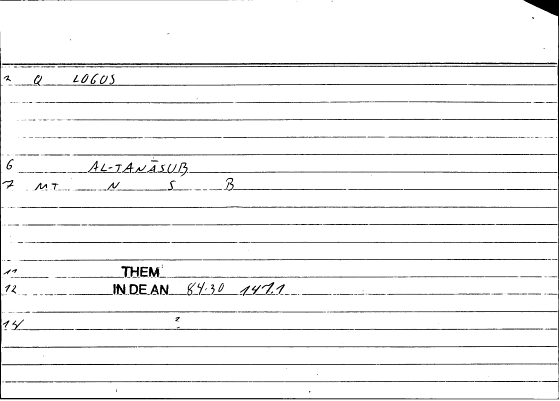 2 Q LOGOS
6 AL-TANĀSUB
7 MT N S B
11 THEM
12 IN DE AN 84.30 147.1
14 2